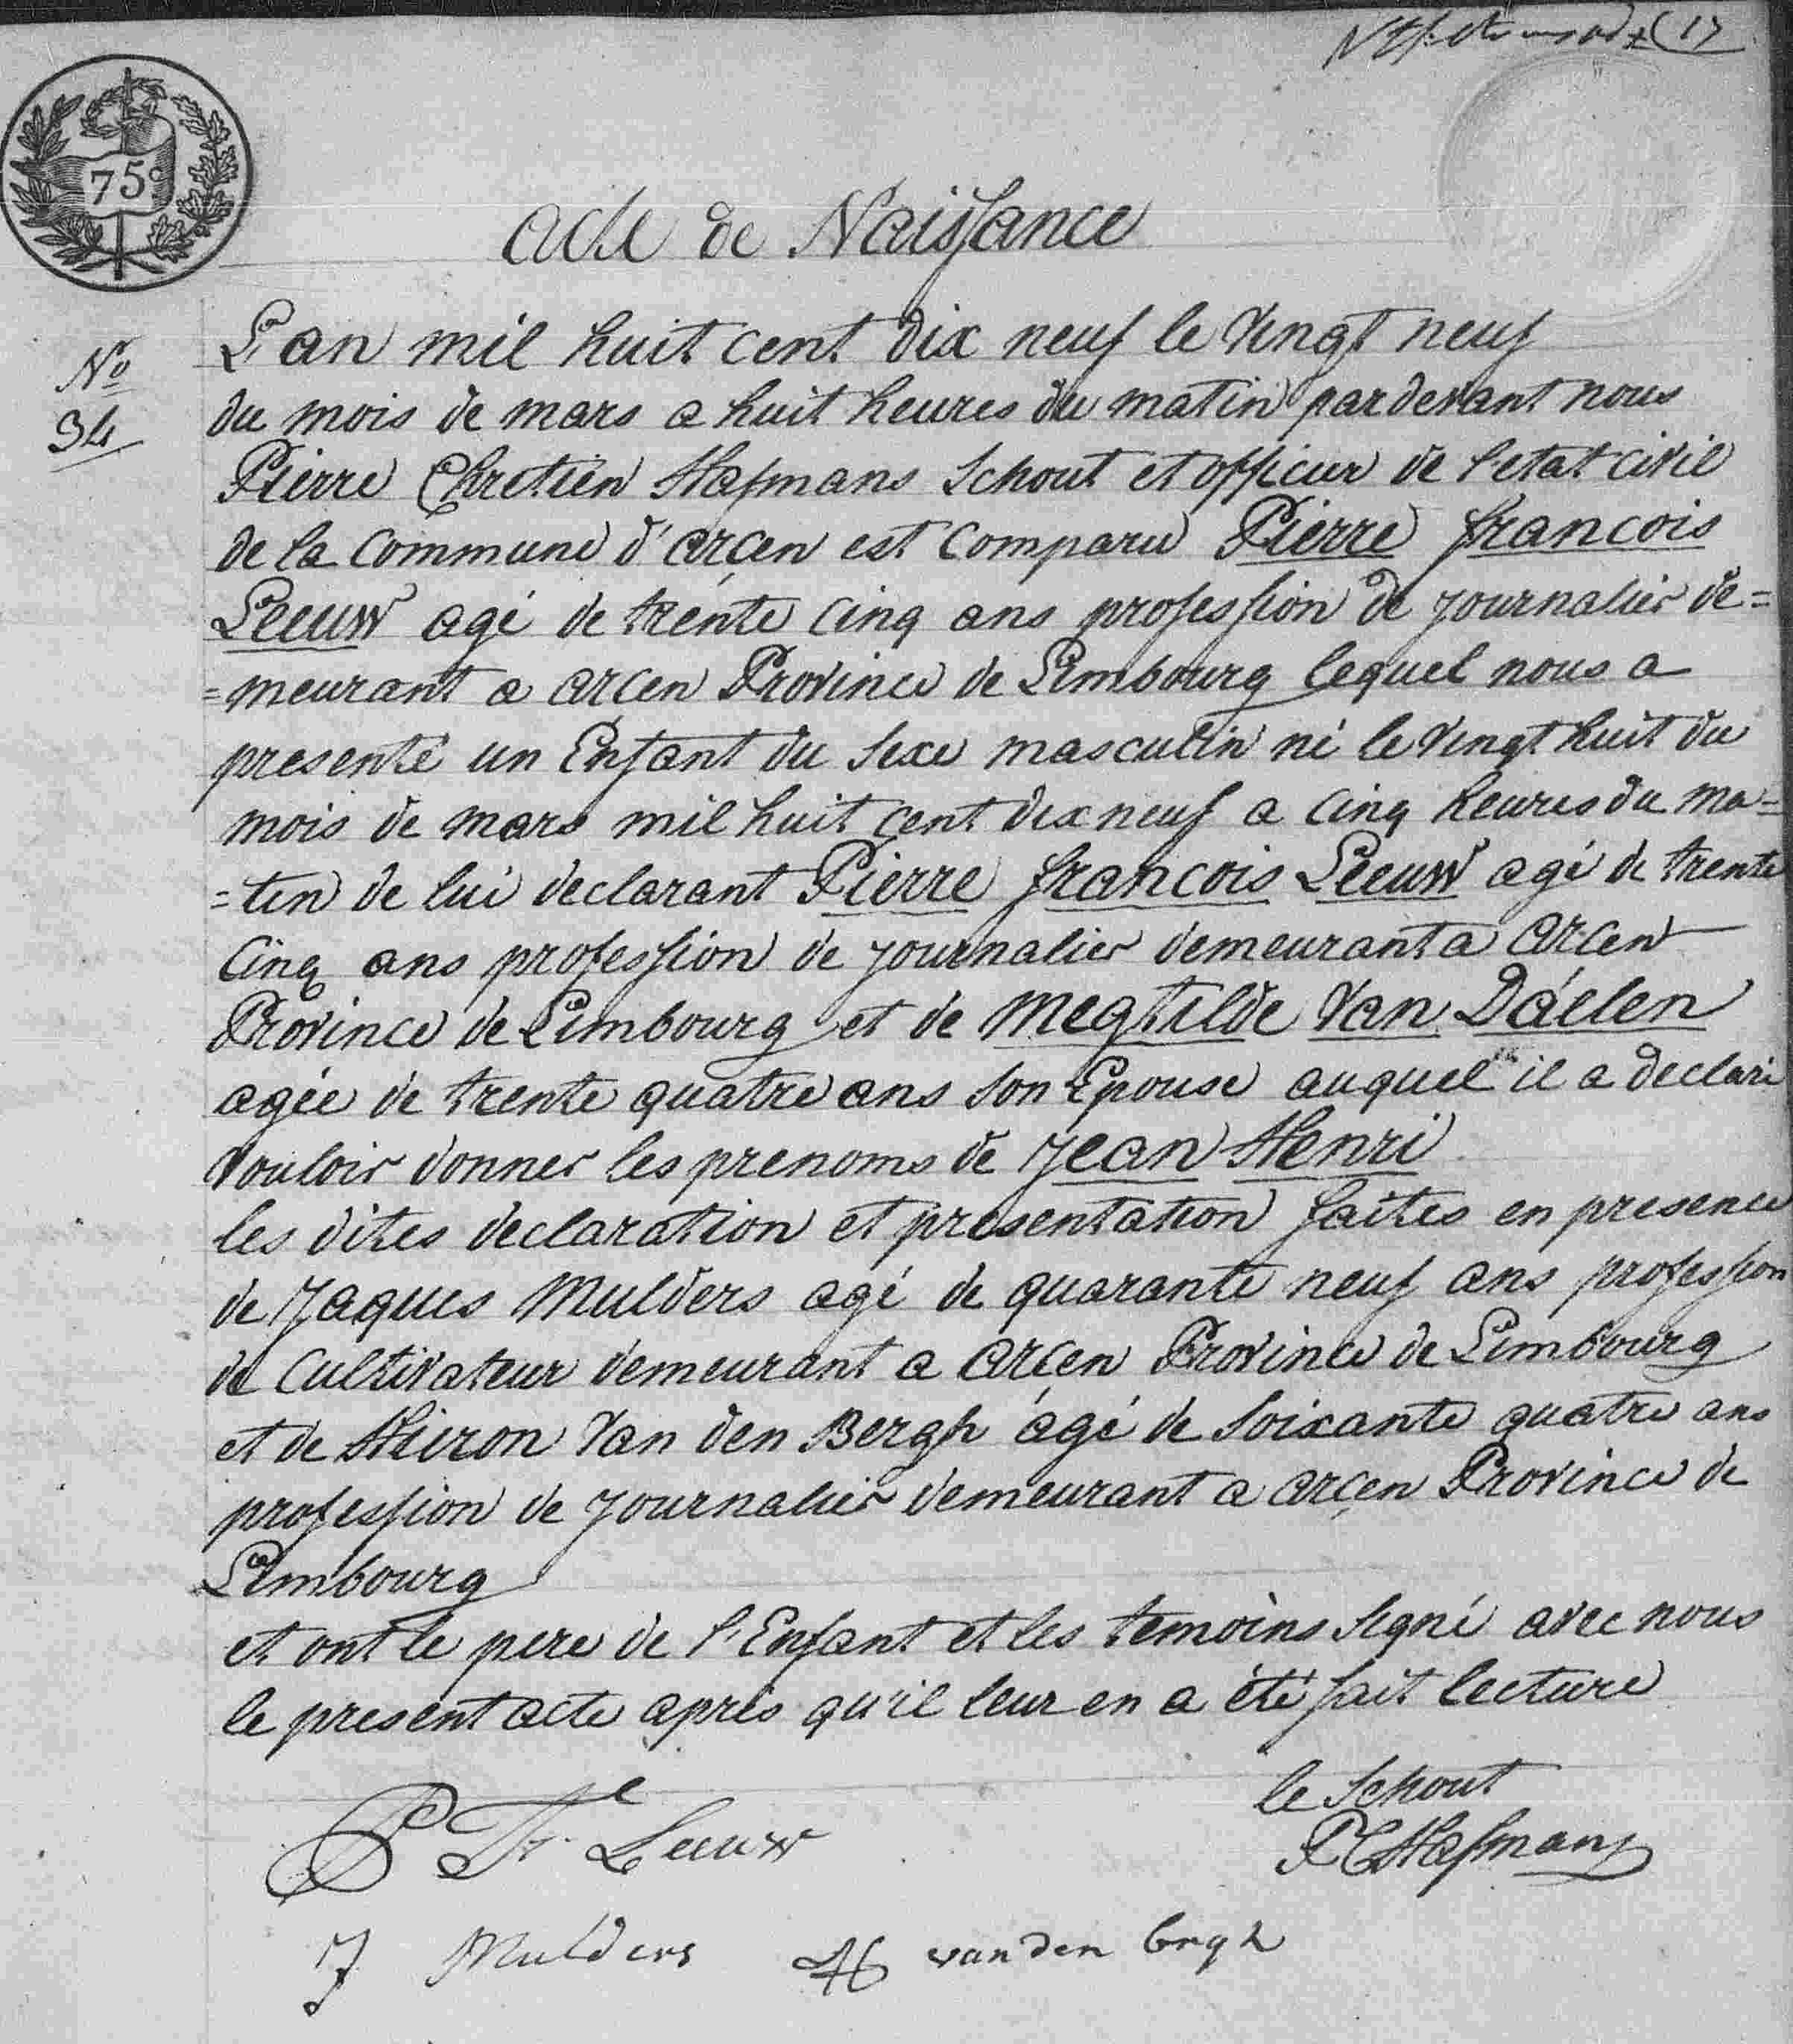 (17
75c
acte de Naissance
No
34
L'an mil huit cent dix neuf le vingt neuf
du mois de mars a huit heures du matin pardevant nous
Pierre Chretien Hafmans Schout et officier de l'etat civil
de la Commune d'arcen est Comparu Pierre francois
Leeuw agé de trente cinq ans profession de journalier de=
=meurant a arcen Province de Limbourg lequel nous a
presenté un Enfant du sexe masculin né le vingt huit du
mois de mars mil huit cent dix neuf a cinq heures du ma=
=tin de lui declarant Pierre francois Leeuw agé de trente
cinq ans profession de journalier demeurant a arcen
Province de Limbourg et de Megtilde Van Daelen
agée de trente quatre ans son Epouse auquel il a declaré
vouloir donner les prenoms de Jean Henri
les dites declaration et presentation faites en presence
de Jaques Mulders agé de quarante neuf ans profession
de Cultivateur demeurant a arcen Province de Limbourg
et de Hieron Van den Bergh agé de soixante quatre ans
profession de journalier demeurant a arcen Province de
Limbourg
et ont le pere de l'Enfant et les temoins signé avec nous
le present acte après qu'il leur en a été fait lecture
le Schout
P Fr Leeuw
P C Hafmans
J Mulders H van den bergh